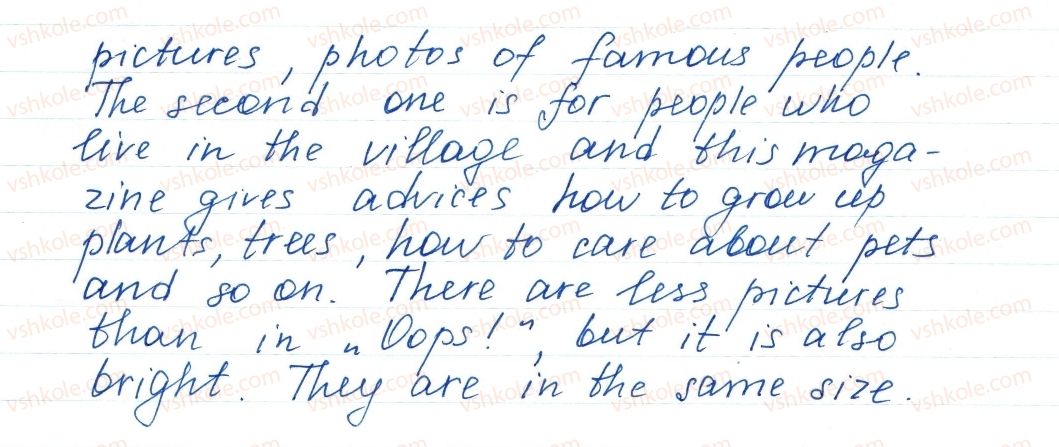 pictures, photos of famous people.
The second one is for people who
live in the village and this maga-
zine gives advices how to grow up
plants, trees, how to care about pets
and so on. There are less pictures
than in „Oops!", but it is also
bright. They are in the same size.